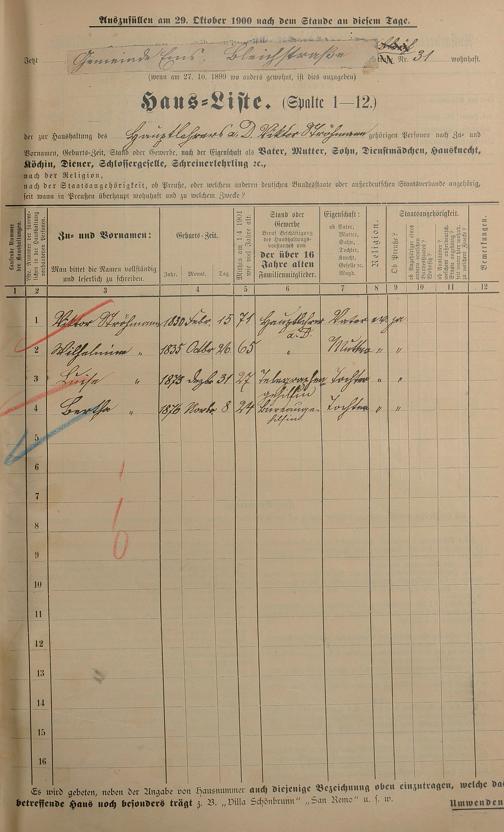 Auszufüllen am 29. Oktober 1900 nach dem Stande an diesem Tage.
Jetzt Gemeinde Ems, Bleichstraße Nr. 31 wohnhaft.
(wenn am 27. 10. 1899 wo anders gewohnt, ist dies anzugeben)
Haus-Liste. (Spalte 1—12.)
der zur Haushaltung des Hauptlehrers a. D. Viktor Ströhmann gehörigen Personen nach Zu- und
Vornamen, Geburts-Zeit, Stand oder Gewerbe, nach der Eigenschaft als Vater, Mutter, Sohn, Dienstmädchen, Hausknecht,
Köchin, Diener, Schlossergeselle, Schreinerlehrling ꝛc.,
nach der Religion,
nach der Staatsangehörigkeit, ob Preuße, oder welchem anderen deutschen Bundesstaate oder außerdeutschen Staatsverbande angehörig,
seit wann in Preußen überhaupt wohnhaft und zu welchem Zwecke?
Laufende Nummer der Haushaltungen.
Zu- und Vornamen:
Man bittet die Namen vollständig und leserlich zu schreiben.
Geburts-Zeit.
Jahr. Monat. Tag.
Mithin am 1/4 1901 wie viel Jahre alt
Stand oder Gewerbe
der über 16 Jahre alten Familienmitglieder.
Eigenschaft:
ob Vater, Mutter, Sohn, Tochter, Knecht, Geselle ꝛc. Magd.
Religion
Staatsangehörigkeit.
Ob Preuße?
Bemerkungen.
1 2 3 4 5 6 7 8 9 10 11 12
1 Viktor Ströhmann 1830 Febr. 15 71 Hauptlehrer a. D. Vater ev. ja
2 Wilhelmine " 1835 Oktbr 26 65 " Mutter " "
3 Luise " 1873 Dezbr 31 27 Telegraphengehilfin Tochter " "
4 Bertha " 1876 Novbr 8 24 Bureaugehilfin Tochter " "
5
6
7
8
9
10
11
12
13
14
15
16
Es wird gebeten, neben der Angabe von Hausnummer auch diejenige Bezeichnung oben einzutragen, welche das
betreffende Haus noch besonders trägt z. B. „Villa Schönbrunn" „San Remo" u. s. w.
Umwenden